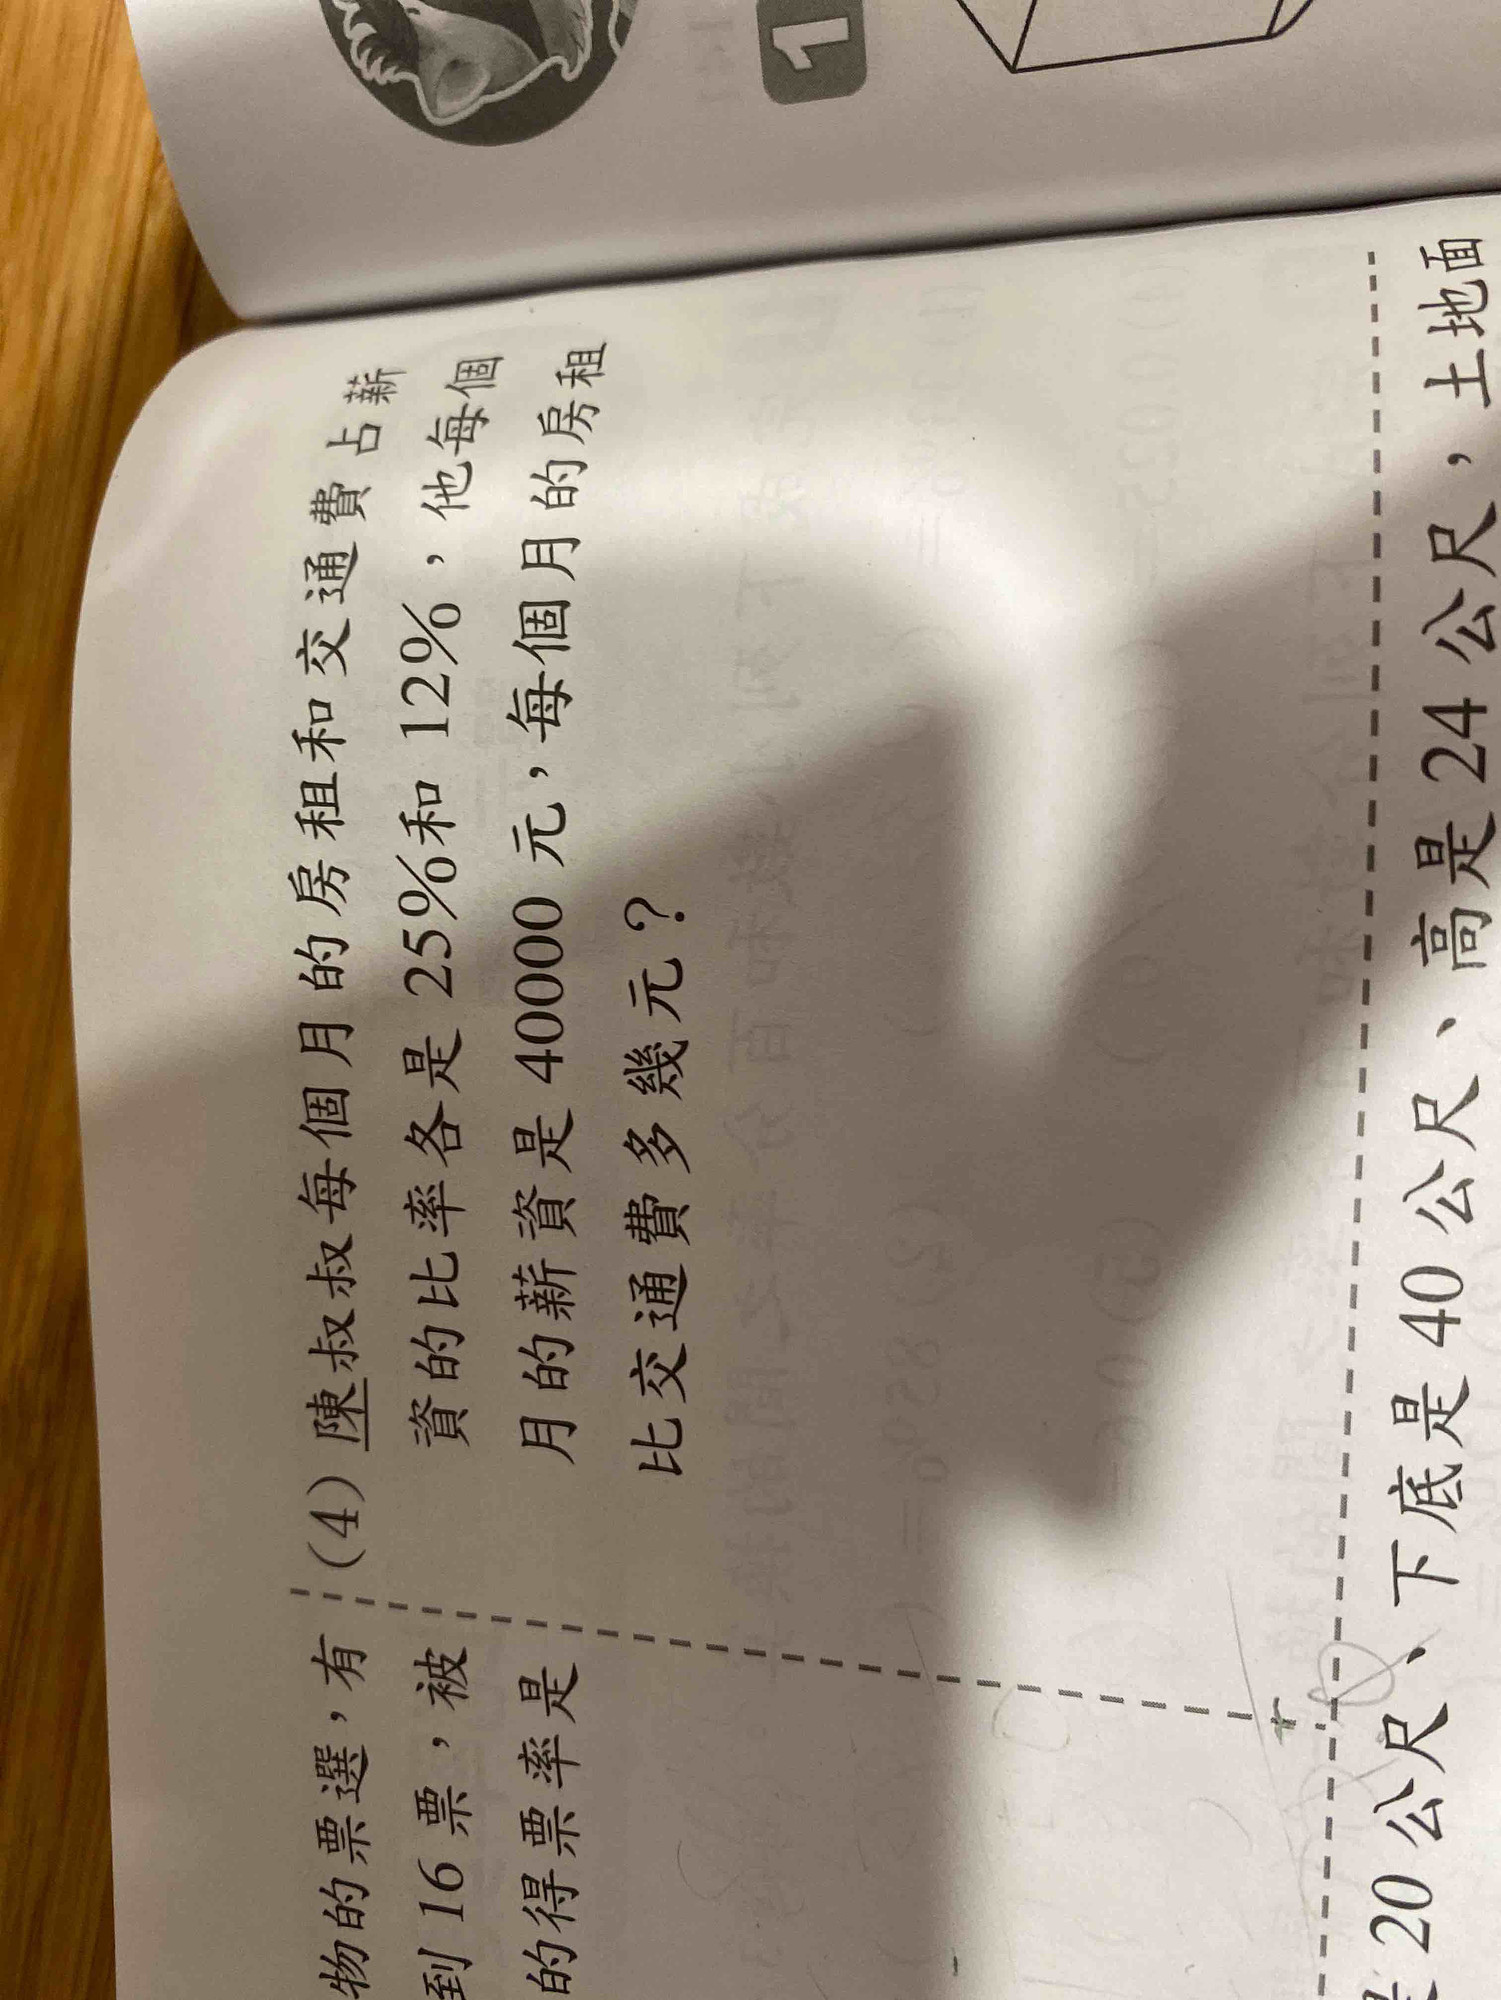 1
(4) 陳叔叔每個月的房租和交通費占薪
資的比率各是 25%和 12%，他每個
月的薪資是 40000 元，每個月的房租
比交通費多幾元？
物的票選，有
到 16 票，被
的得票率是
是 20 公尺、下底是 40 公尺、高是 24 公尺，土地面